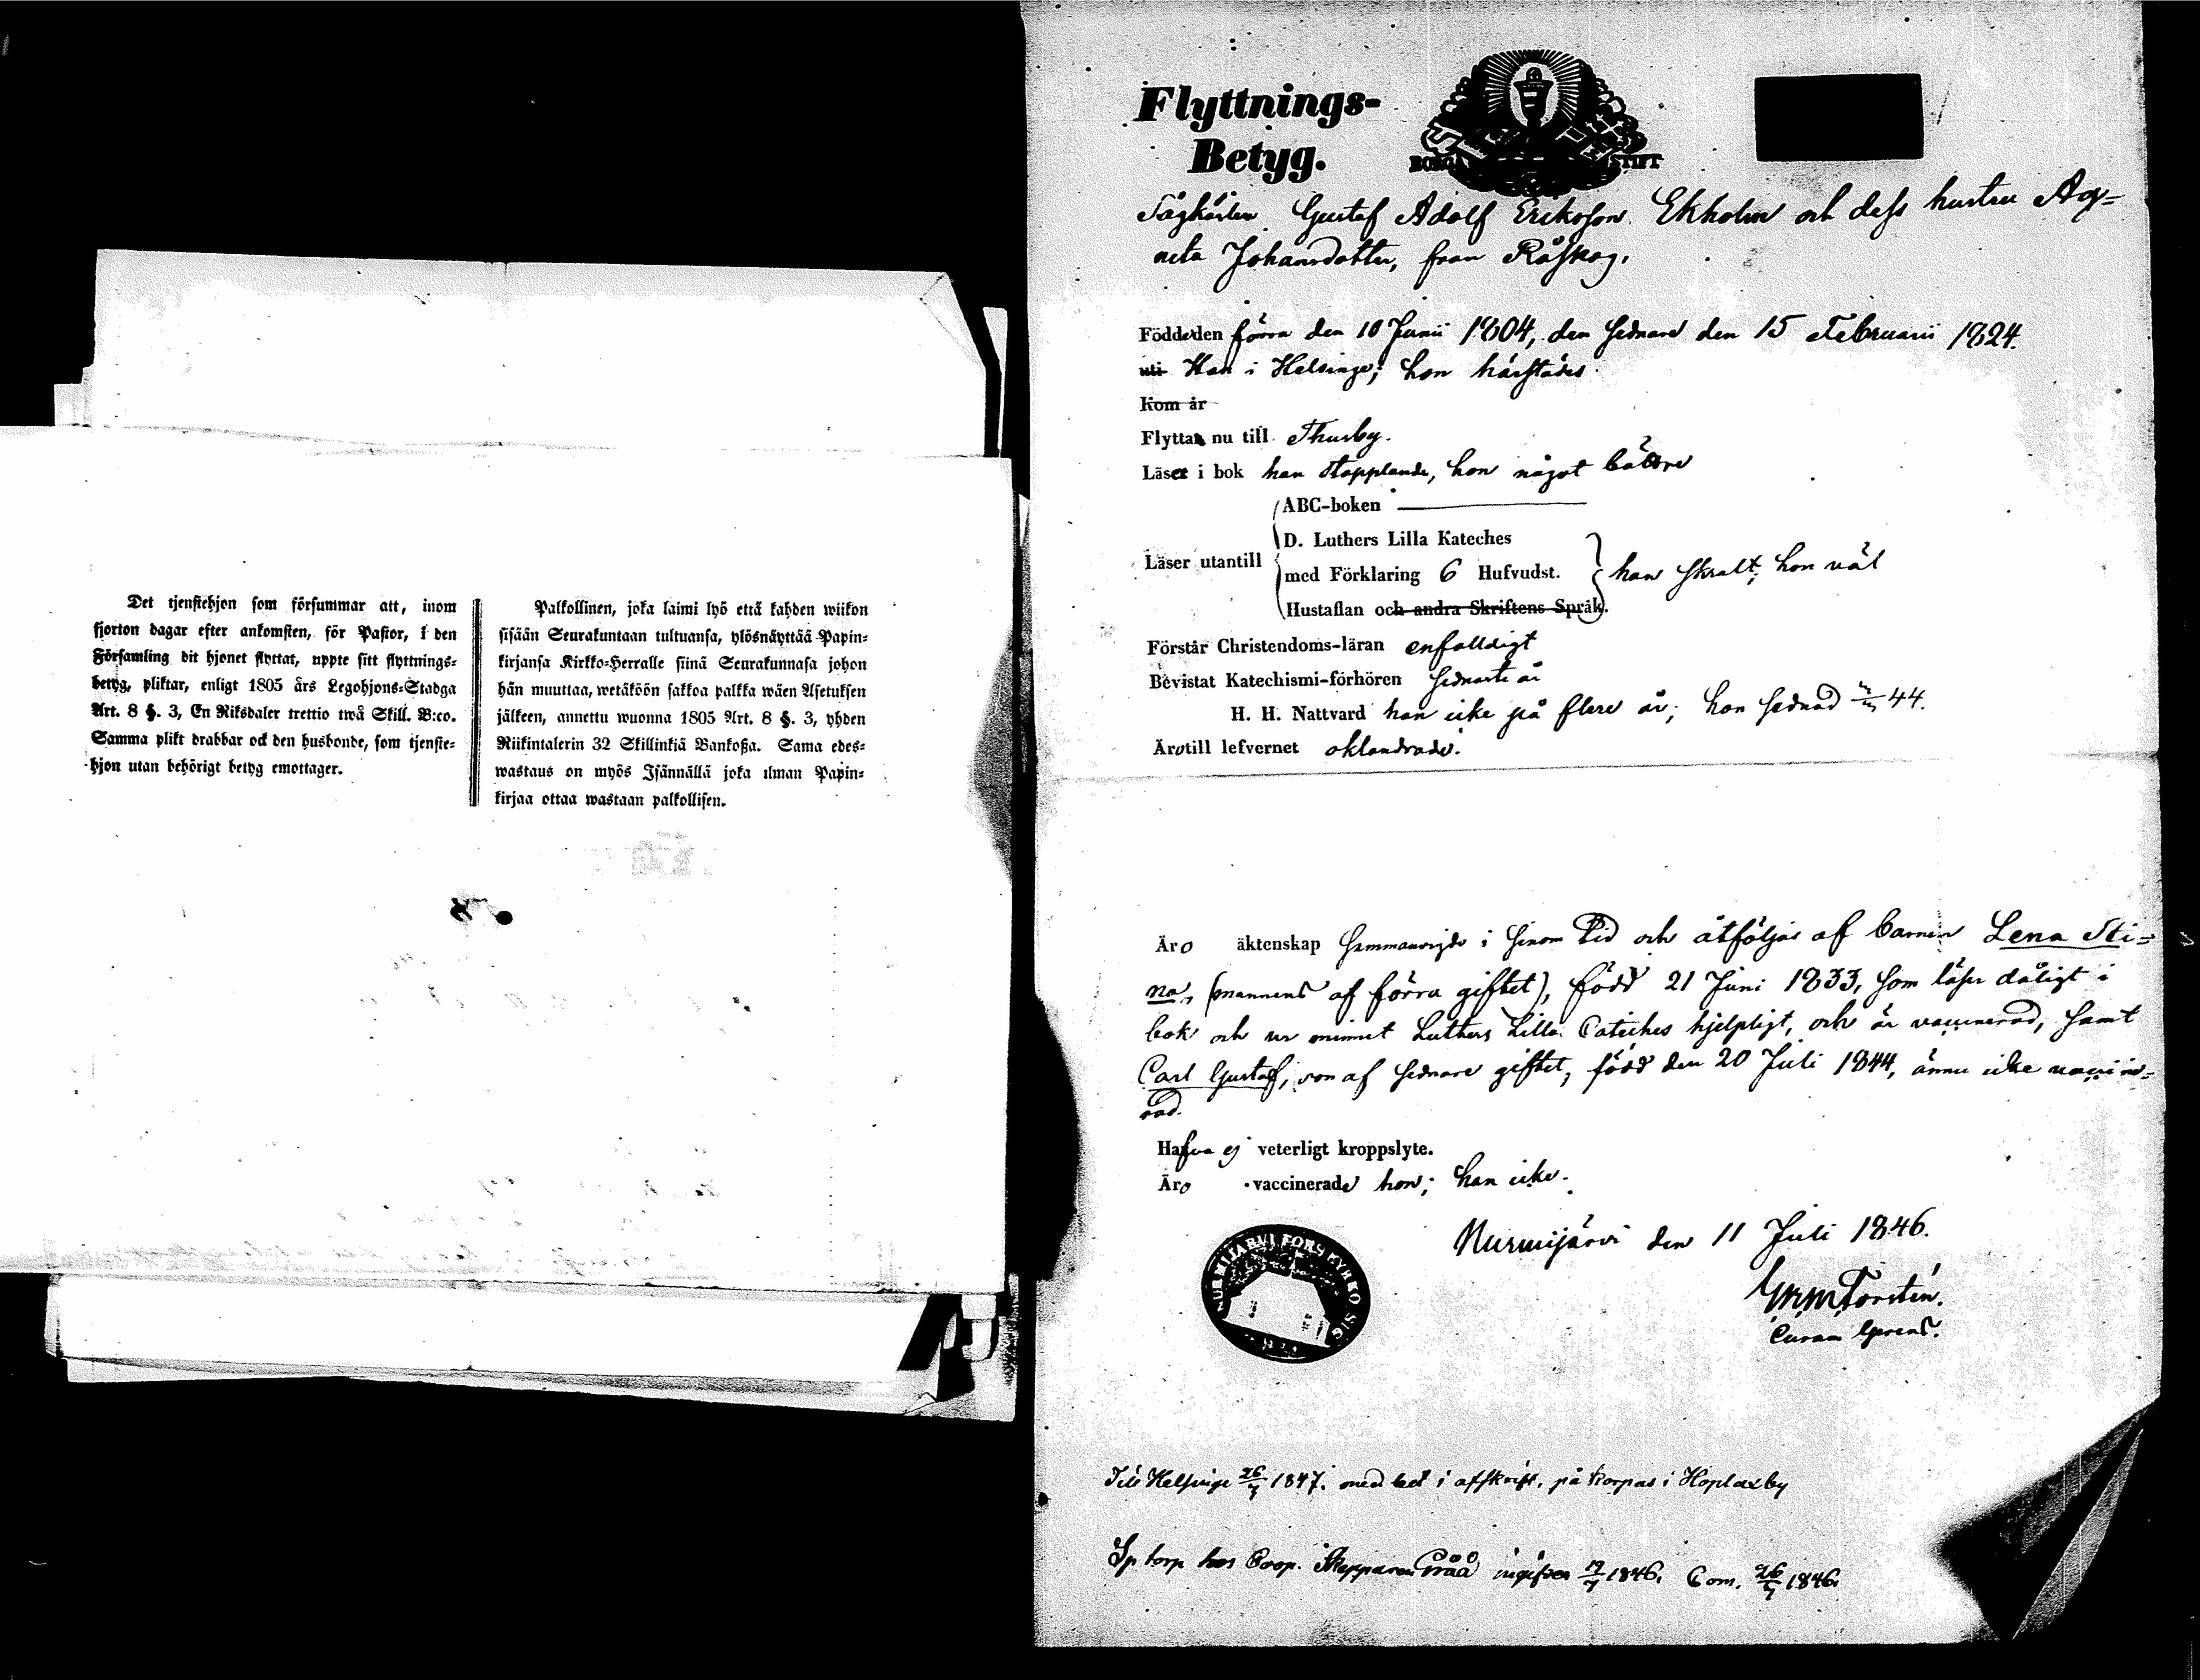 Det tjenstehjon som försummar att, inom
fjorton dagar efter ankomsten, för Pastor, i den
Församling dit hjonet flyttat, uppte sitt flyttnings-
betyg, pliktar, enligt 1805 års Legohjons-Stadga
Art. 8 §. 3, En Riksdaler trettio twå Skill. B:co.
Samma plikt drabbar ock den husbonde, som tjenste-
hjon utan behörigt betyg emottager.
Palkollinen, joka laimi lyö että kahden wiikon
sisään Seurakuntaan tultuansa, ylösnäyttää Papin-
kirjansa Kirkko-Herralle siinä Seurakunnasa johon
hän muuttaa, wetäköön sakkoa palkka wäen Asetuksen
jälkeen, annettu wuonna 1805 Art. 8 §. 3, yhden
Riikintalerin 32 Skillinkiä Bankoßa. Sama edes-
wastaus on myös Isännällä joka ilman Papin-
kirjaa ottaa wastaan palkollisen.
Flyttnings-
Betyg.
STIFT
Gustaf Adolf Eriksson Ekholm och dess hustru Ag-
neta Johansdotter, från Råskog.
Födde den förra den 10 Junii 1804, den sednare den 15 Februarii 1824.
uti Han i Helsinge; hon härstädes
Kom år
Flytta nu till Thusby.
Läser i bok han stapplande, hon något bättre
ABC-boken
Läser utantill
D. Luthers Lilla Kateches
med Förklaring 6 Hufvudst.
Hustaflan och andra Skriftens Språk.
han skralt; hon väl
Förstår Christendoms-läran enfalldigt
Bevistat Katechismi-förhören sednaste år
H. H. Nattvard han icke på flere år; hon sednast 44.
Äro till lefvernet oklandrade.
Äro äktenskap sammanvigde i sinom tid och åtföljas af barnen Lena Sti-
na, (mannens af förra giftet), född 21 Juni 1833, som läser dåligt i
bok och ur minnet Luthers Lilla Cateches hjelpligt, och är vaccinerad, samt
Carl Gustaf, son af sednare giftet, född den 20 Juli 1844, ännu icke vaccine-
rad.
Hafva ej veterligt kroppslyte.
Äro vaccinerade hon; han icke.
NURMIJÄRVI FÖRS KYRKO SIG
Nurmijärvi den 11 Juli 1846.
Forstén.
Curam Gerens.
Till Helsinge 26/7 1847. med bet i afskrift, på Korpas i Hoplaxby
torp hos 1846. Com. 26/7 1846.